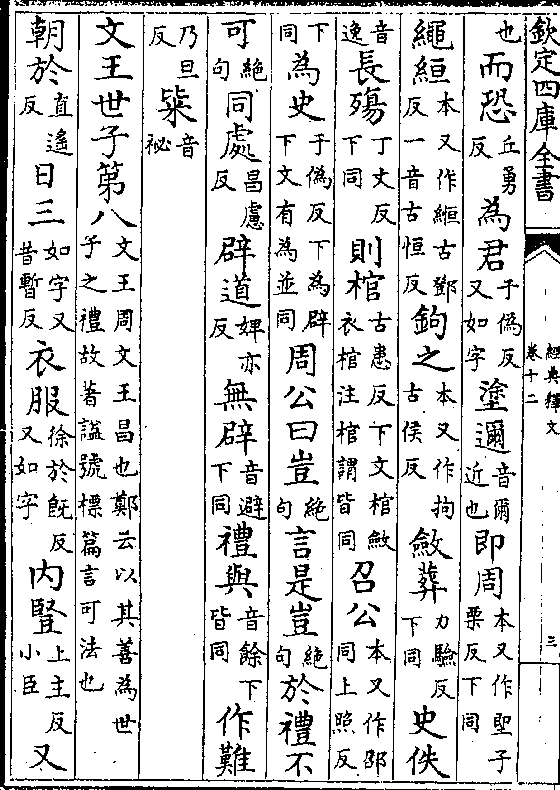 欽定四庫全書
經典釋文
卷十二
三
也而恐丘勇反為君于偽反又如字塗邇音爾近也即周本又作堲子栗反下同
繩絙本又作緪古鄧反一音古恒反鉤之本又作拘古侯反斂葬力驗反下同史佚
音逸長殤丁丈反下同則棺古患反下文棺斂衣棺注棺謂皆同召公本又作邵同上照反
下同為史于偽反下為辟下文有為並同周公曰豈絶句言是豈絶句於禮不
可絶句同處昌慮反辟道婢亦反無辟音避下同禮與音餘下皆同作難
乃旦反粊音祕
文王世子第八文王周文王昌也鄭云以其善為世子之禮故著謚號標篇言可法也
朝於直遙反日三如字又昔暫反衣服徐於旣反又如字内豎上主反小臣又